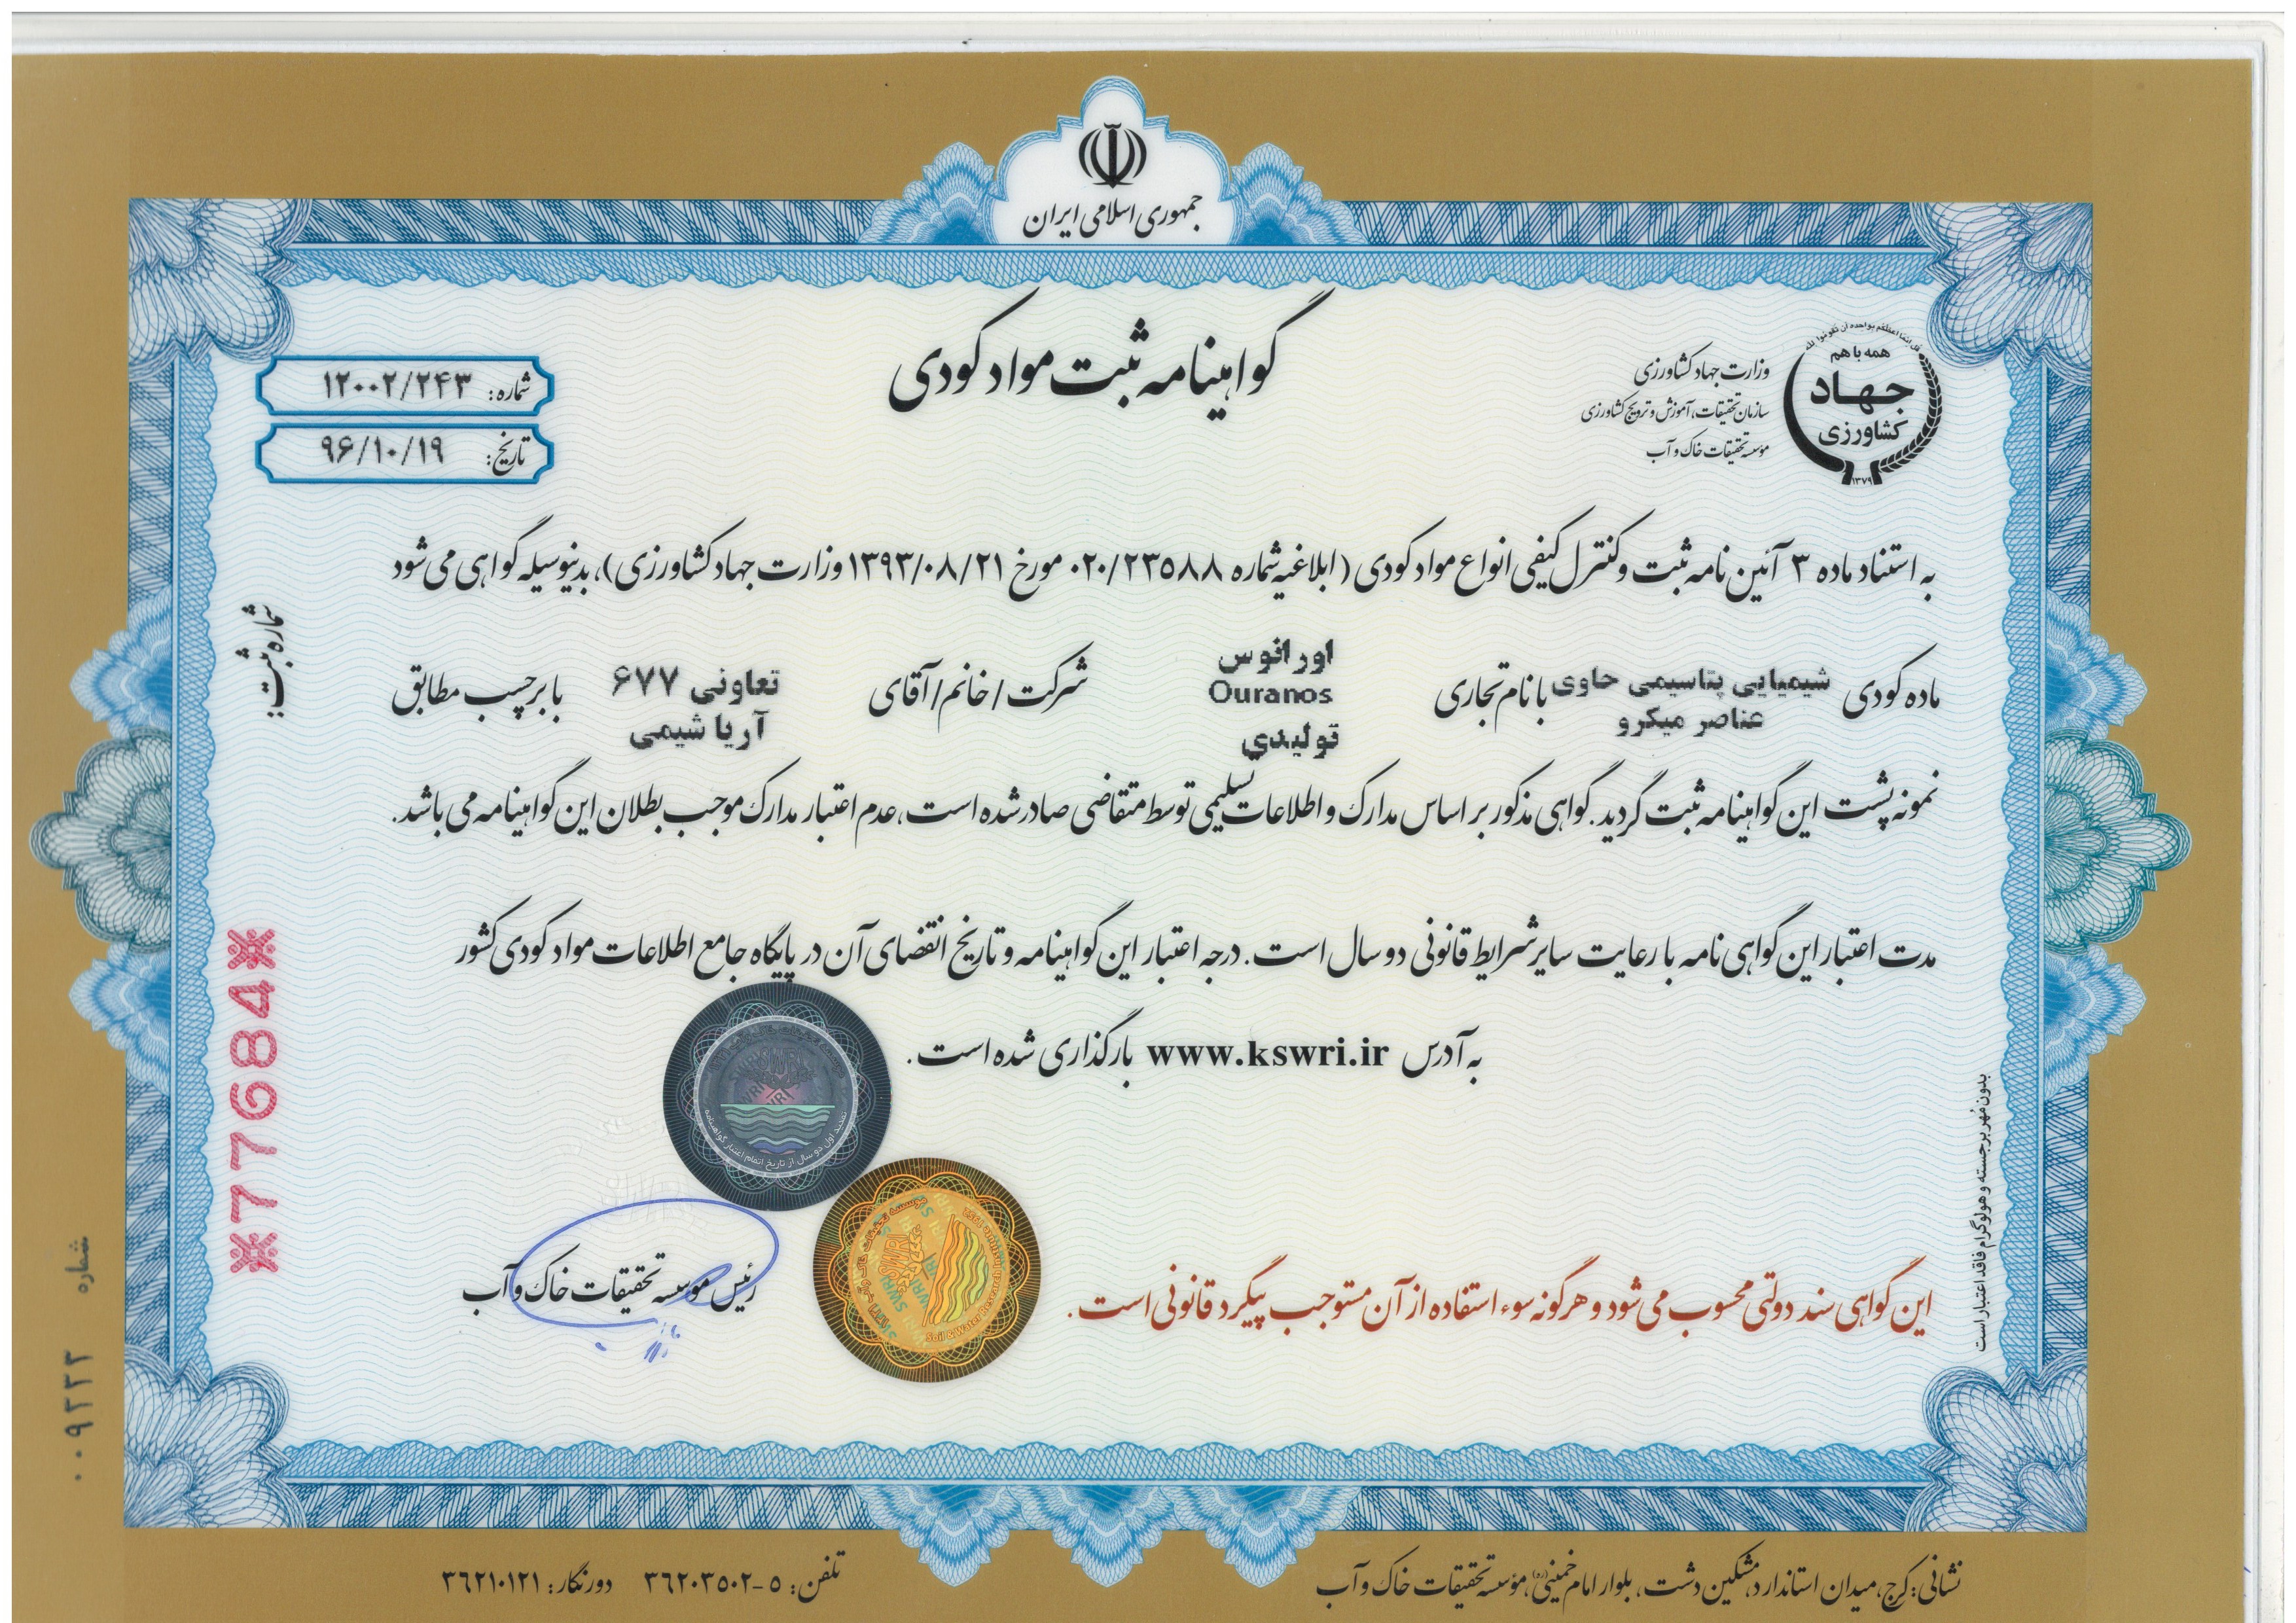 جمهوری اسلامی ایران
گواهینامه ثبت مواد کودی
همه با هم
جهاد
کشاورزی
۱۳۷۹
وزارت جهاد کشاورزی
سازمان تحقیقات، آموزش و ترویج کشاورزی
مؤسسه تحقیقات خاک و آب
شماره: ۱۲۰۰۲/۲۴۳
تاریخ: ۹۶/۱۰/۱۹
به استناد ماده ۳ آئین نامه ثبت و کنترل کیفی انواع مواد کودی (ابلاغیه شماره ۰۲۰/۲۳۵۸۸ مورخ ۱۳۹۳/۰۸/۲۱ وزارت جهاد کشاورزی)، بدینوسیله گواهی می شود
ماده کودی شیمیایی پتاسیمی حاوی عناصر میکرو با نام تجاری اورانوس Ouranos تولیدی شرکت / خانم / آقای تعاونی ۶۷۷ آریا شیمی با برچسب مطابق
نمونه پشت این گواهینامه ثبت گردید. گواهی مذکور بر اساس مدارک و اطلاعات تسلیمی توسط متقاضی صادر شده است، عدم اعتبار مدارک موجب بطلان این گواهینامه می باشد.
مدت اعتبار این گواهی نامه با رعایت سایر شرایط قانونی دو سال است. درجه اعتبار این گواهینامه و تاریخ انقضای آن در پایگاه جامع اطلاعات مواد کودی کشور
به آدرس www.kswri.ir بارگذاری شده است.
تمدید اول دو سال از تاریخ اتمام اعتبار گواهینامه
موسسه تحقیقات خاک و آب
Soil & Water Research Institute
رئیس موسسه تحقیقات خاک و آب
این گواهی سند دولتی محسوب می شود و هرگونه سوء استفاده از آن مستوجب پیگرد قانونی است.
بدون مُهر برجسته و هولوگرام فاقد اعتبار است
شماره ثبت:
*77684*
شماره ۰۰۹۲۲۳
نشانی: کرج، میدان استاندارد، مشکین دشت، بلوار امام خمینی(ره)، مؤسسه تحقیقات خاک و آب
تلفن: ۵-۳۶۲۰۳۵۰۲ دورنگار: ۳۶۲۱۰۱۲۱